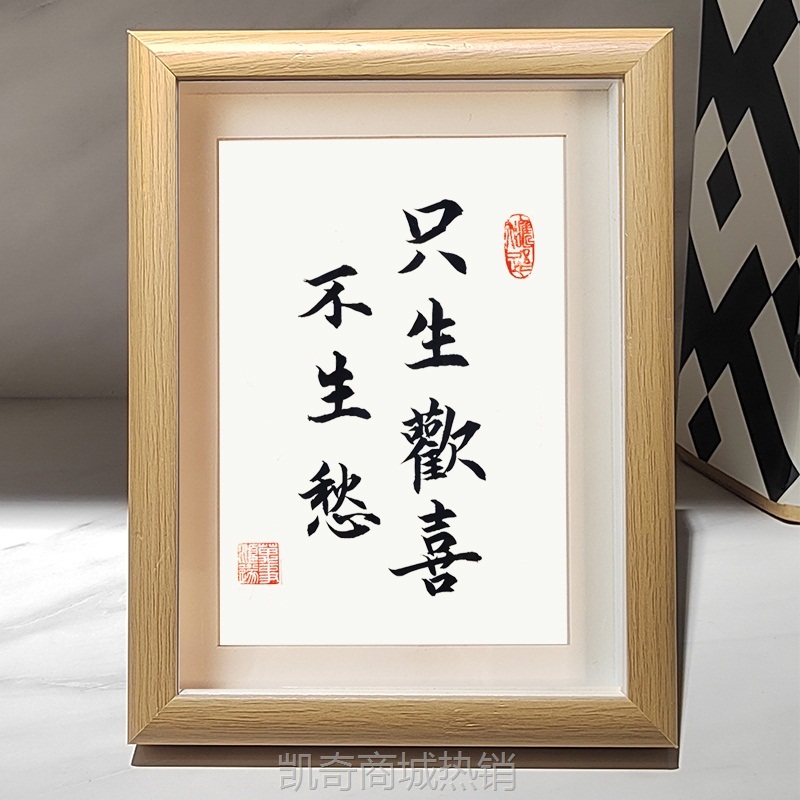 只生歡喜
不生愁
凯奇商城热销